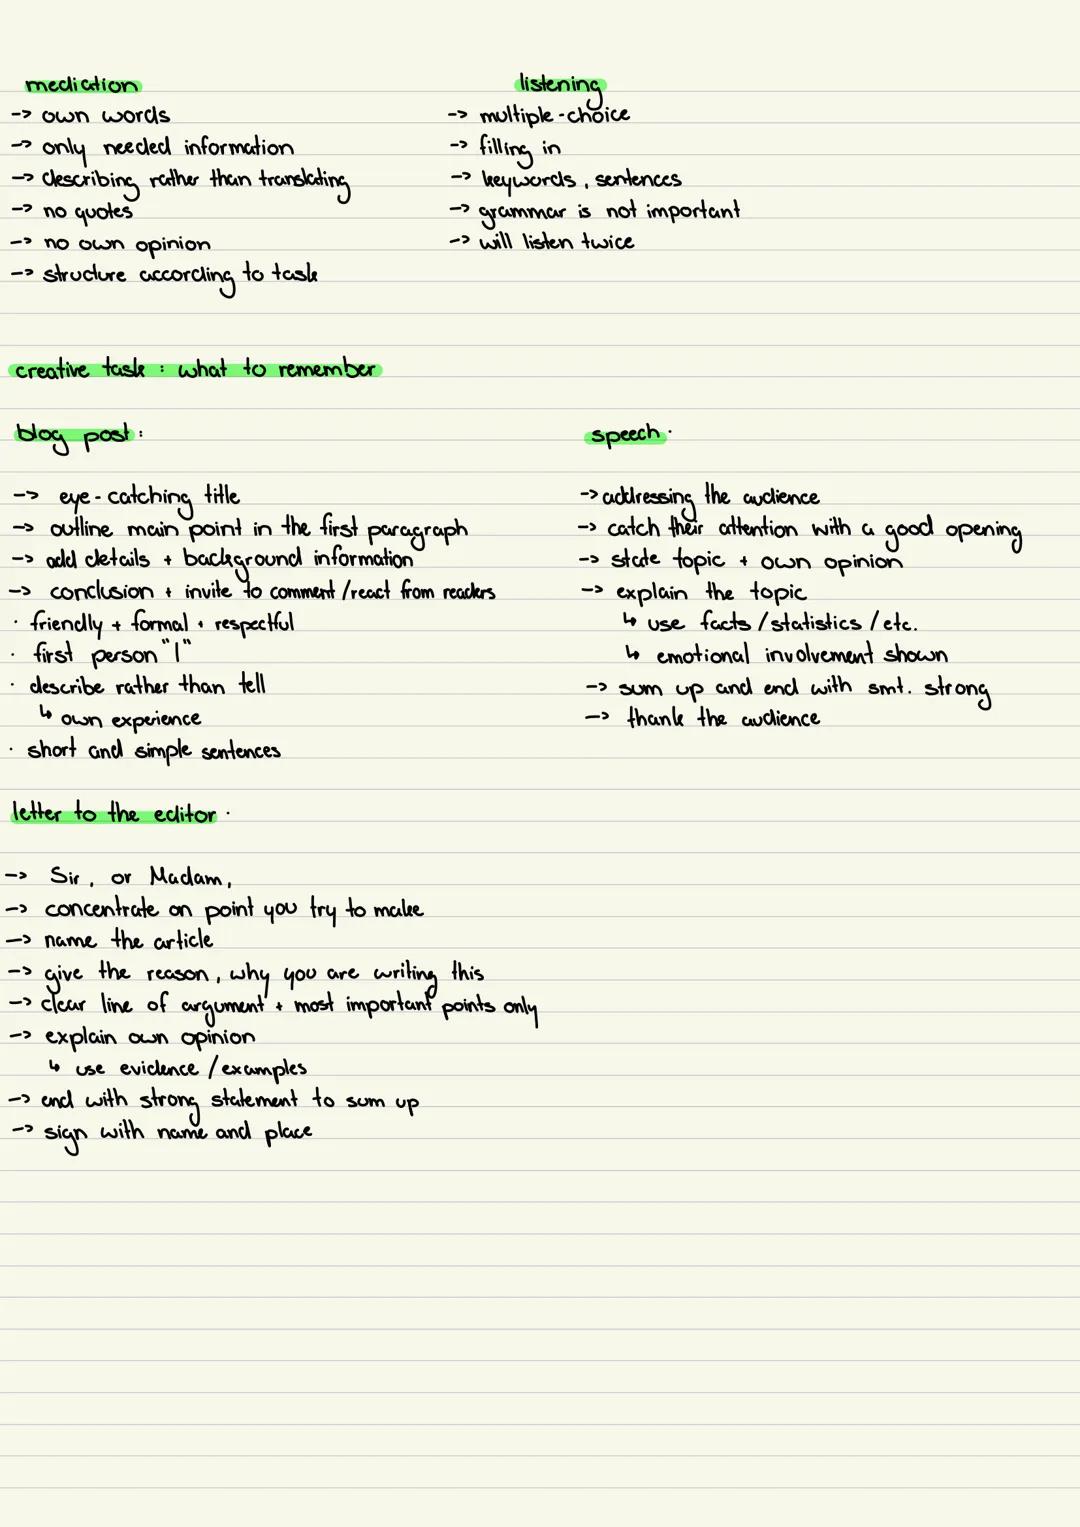 mediation
-> own words
-> only needed information
-> describing rather than translating
-> no quotes
-> no own opinion
-> structure according to task
listening
-> multiple-choice
-> filling in
-> keywords, sentences
-> grammar is not important
-> will listen twice
creative task : what to remember
blog post :
-> eye-catching title
-> outline main point in the first paragraph
-> add details + background information
-> conclusion + invite to comment /react from readers
· friendly + formal + respectful
· first person "I"
· describe rather than tell
↳ own experience
· short and simple sentences
speech ·
-> addressing the audience
-> catch their attention with a good opening
-> state topic + own opinion
-> explain the topic
↳ use facts / statistics / etc.
↳ emotional involvement shown
-> sum up and end with smt. strong
-> thank the audience
letter to the editor ·
-> Sir, or Madam,
-> concentrate on point you try to make
-> name the article
-> give the reason, why you are writing this
-> clear line of argument + most important points only
-> explain own opinion
↳ use evidence / examples
-> end with strong statement to sum up
-> sign with name and place